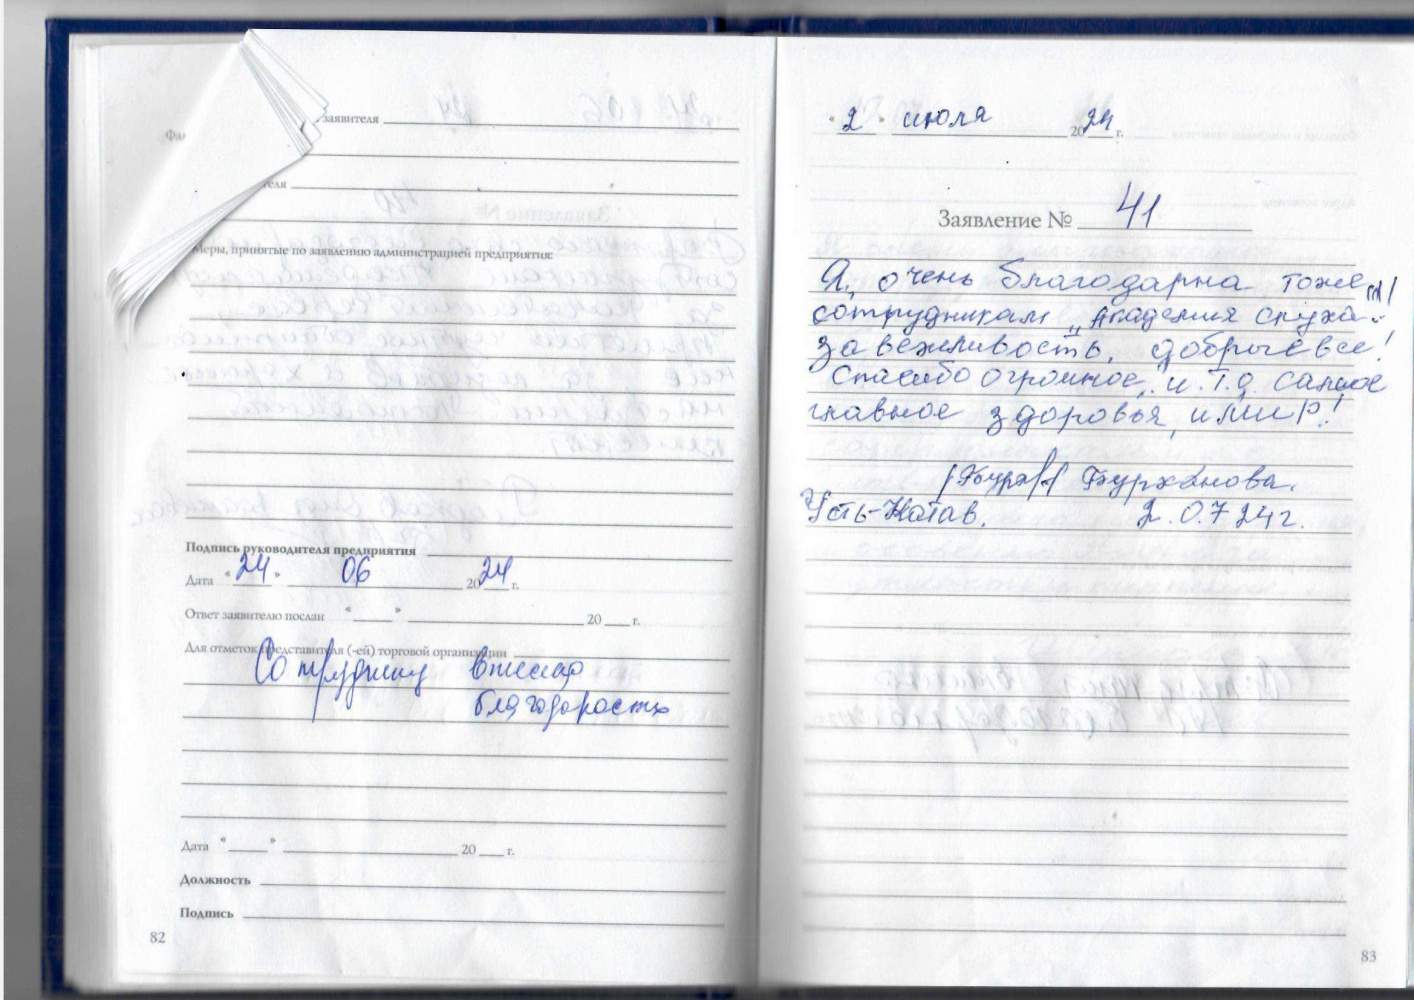 Фа
заявителя
теля
Меры, принятые по заявлению администрацией предприятия:
Подпись руководителя предприятия
Дата "24" 06 2024 г.
Ответ заявителю послан " " 20 г.
Для отметок представителя (-ей) торговой организации
Сотруднику
благодарость
Дата " " 20 г.
Должность
Подпись
82
"2" июля 2024 г.
Заявление № 41
Я, очень благодарна тоже
сотрудникам „Академия слуха"
за вежливость, добрые все!
Спасибо огромное, и.т.д. самое
главное здоровья, и мир!
Бурханова.
Усть-Катав. 2.0.7 24 г.
83